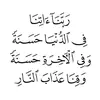 رَبَّنَآ ءَاتِنَا
فِي الدُّنْيَا حَسَنَةً
وَفِي الْآخِرَةِ حَسَنَةً
وَقِنَا عَذَابَ النَّارِ